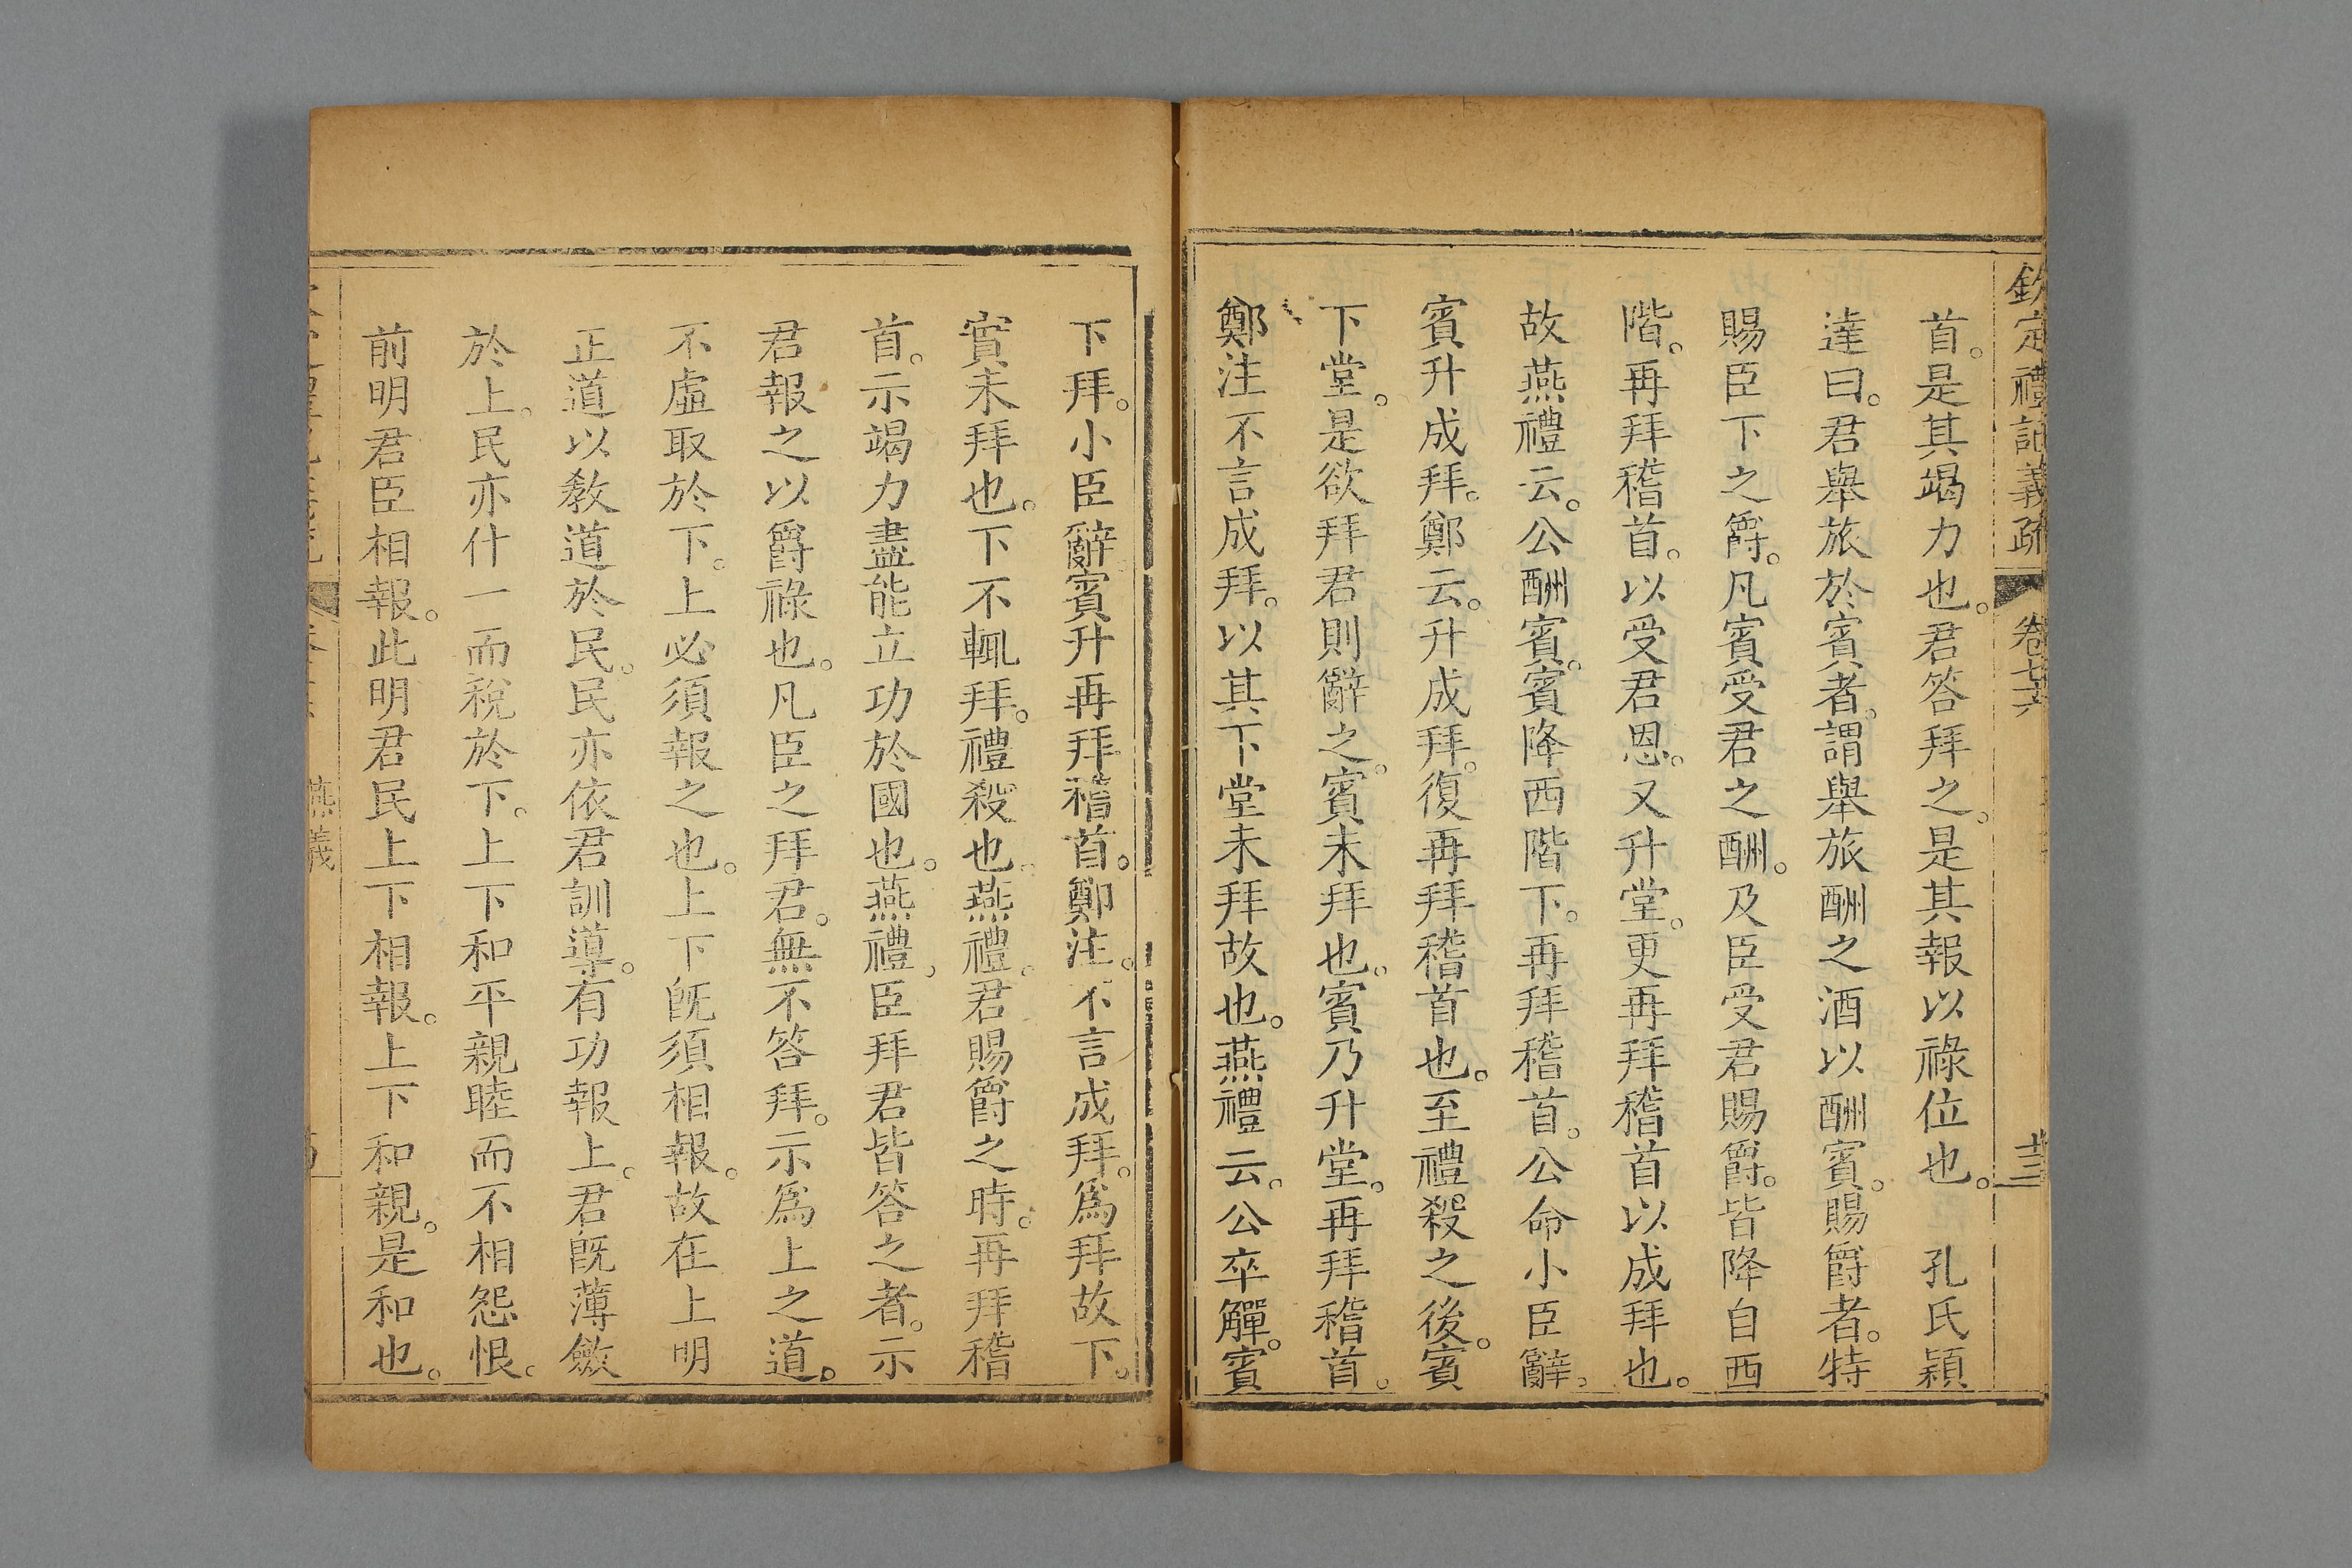 欽定禮記義疏 卷七十六 十三
首。是其竭力也。君答拜之。是其報以祿位也。 孔氏穎
達曰。君舉旅於賓者。謂舉旅酬之酒以酬賓。賜爵者。特
賜臣下之爵。凡賓受君之酬。及臣受君賜爵。皆降自西
階。再拜稽首。以受君恩。又升堂。更再拜稽首以成拜也。
故燕禮云。公酬賓。賓降西階下。再拜稽首。公命小臣辭。
賓升成拜。鄭云。升成拜。復再拜稽首也。至禮殺之後。賓
下堂。是欲拜君則辭之。賓未拜也。賓乃升堂。再拜稽首。
鄭注不言成拜。以其下堂未拜故也。燕禮云。公卒觶。賓
下拜。小臣辭。賓升再拜稽首。鄭注。不言成拜。為拜故下。
實未拜也。下不輒拜。禮殺也。燕禮。君賜爵之時。再拜稽
首。示竭力盡能立功於國也。燕禮。臣拜君皆答之者。示
君報之以爵祿也。凡臣之拜君。無不答拜。示為上之道。
不虛取於下。上必須報之也。上下既須相報。故在上明
正道以教道於民。民亦依君訓導。有功報上。君既薄斂
於上。民亦什一而稅於下。上下和平親睦而不相怨恨。
前明君臣相報。此明君民上下相報。上下和親。是和也。
燕義